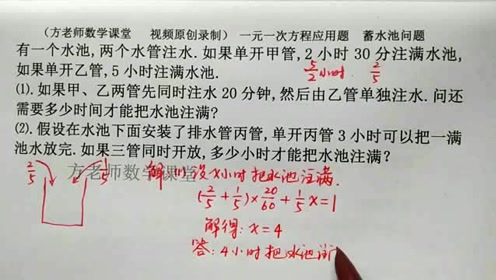 (方老师数学课堂 视频原创录制) 一元一次方程应用题 蓄水池问题
有一个水池,两个水管注水.如果单开甲管,2小时30分注满水池,
如果单开乙管,5小时注满水池. 5/2小时. 2/5
(1).如果甲、乙两管先同时注水20分钟,然后由乙管单独注水.问还
需要多少时间才能把水池注满?
(2).假设在水池下面安装了排水管丙管,单开丙管3小时可以把一满
池水放完.如果三管同时开放,多少小时才能把水池注满?
方老师数学课堂
2/5 1/5 解(1)设x小时把水池注满.
(2/5+1/5)×20/60+1/5x=1
解得:x=4
答:4小时把水池